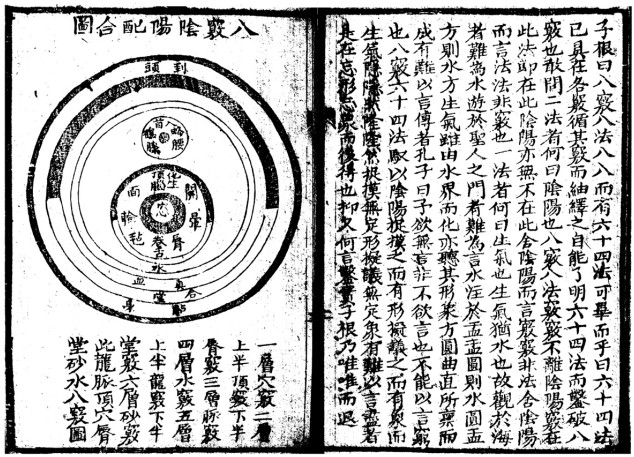 子根曰八竅八法八八而有六十四法可畢而乎曰六十四法
已具在各竅循其竅而紬繹之自能了明六十四法而鑿破八
竅也敢問二法者何曰陰陽也八竅八法竅竅不離陰陽竅在
此法即在此陰陽亦無不在此舍陰陽而言竅竅非法舍陰陽
而言法法非竅也一法者何曰生氣也生氣猶水也故觀於海
者難為水遊於聖人之門者難為言水注於盂盂圓則水圓盂
方則水方生氣雖由水界而化亦聽其形象方圓曲直所稟而
成有難以言傳者孔子曰予欲無言非不欲言也不能以言竅
也八竅六十四法馭以陰陽捉摸之而有形擬議之而有象而
生氣隱隱然隆隆然捉摸無定形擬議無定象有難以言盡者
是在忘形忘象而後得也抑又何言鑿子根乃唯唯而退
八竅陰陽配合圖
到頭
化生
頂腦
唇
水
合
堂
一層穴竅二層
上半頂竅下半
唇竅三層豚竅
四層水竅五層
上半龍竅下半
堂竅六層砂竅
此龍豚頂穴唇
堂砂水八竅圖